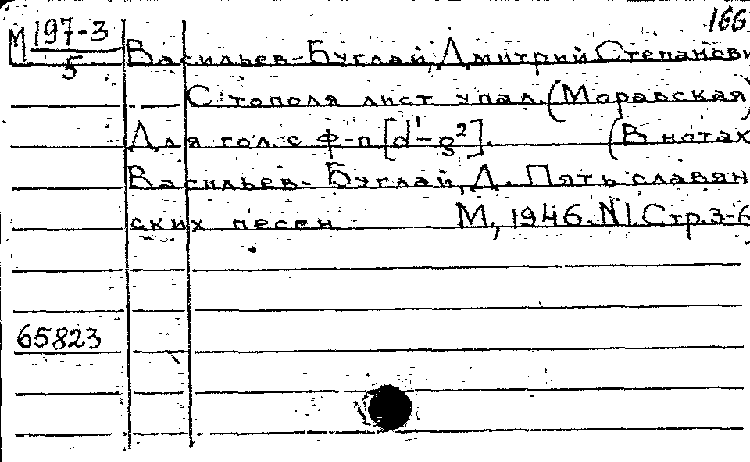 166
М 197-3
5
Васильев-Буглай, Дмитрий Степанови
С тополя лист упал. (Моравская)
Для гол. с ф-п [d¹-g²]. (В нотах
Васильев-Буглай, Д. Пять славян
ских песен М., 1946. N1. Стр. 3-6
65823